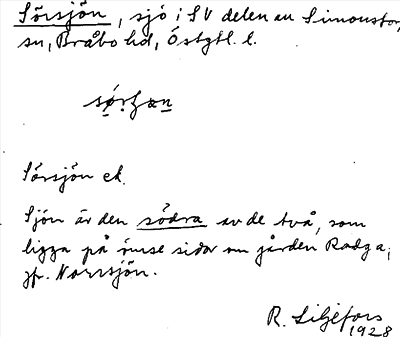 Sörsjön, sjö i SV delen av Simonstorp,
sn, Bråbo hd, Östgtl. l.
Sörsjön ek.
Sjön är den södra av de två, som
ligga på ömse sidor om gården Rodga,
jfr. Norrsjön.
R. Liljefors
1928